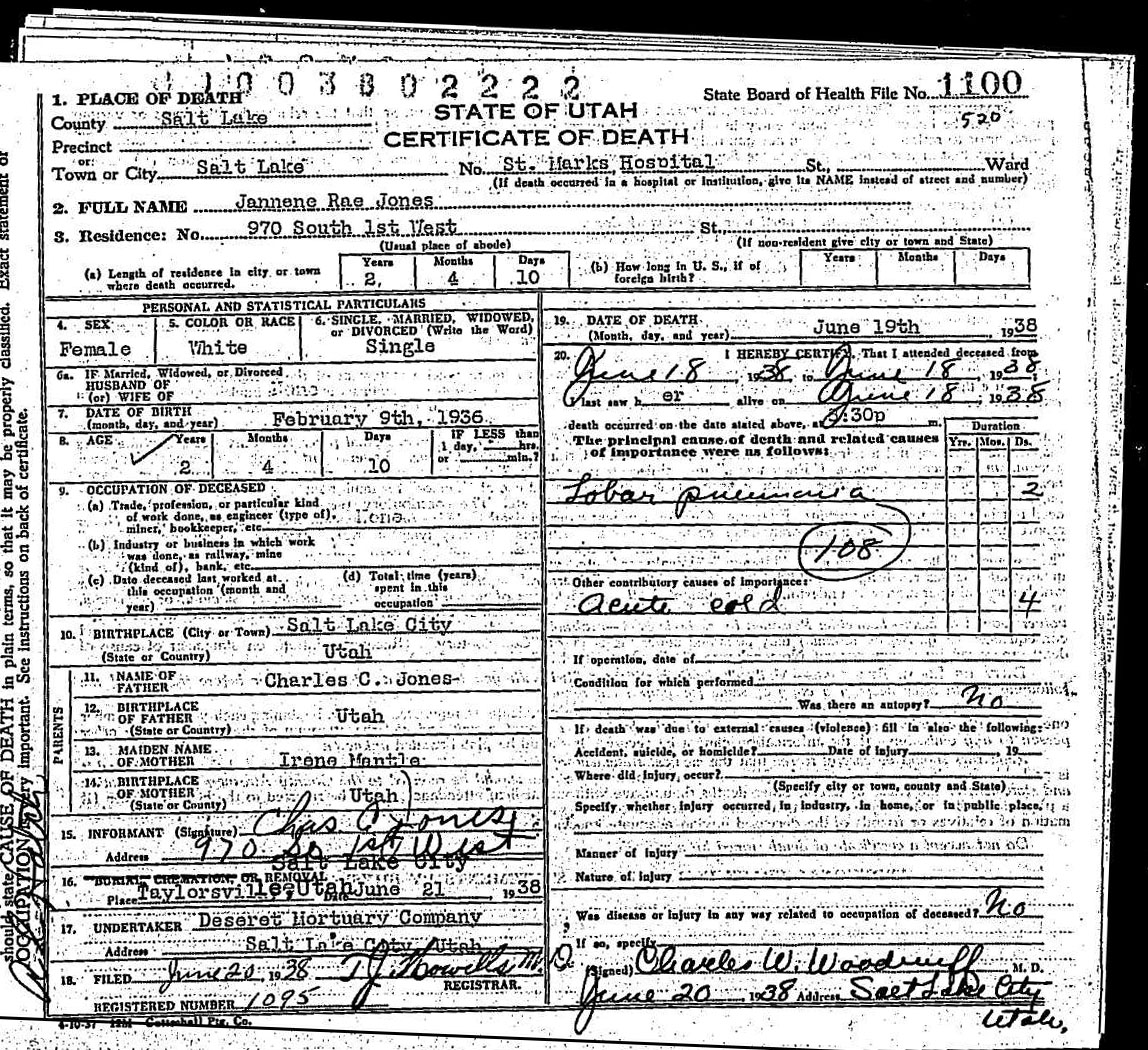 11003802222
State Board of Health File No. 1100
520
1. PLACE OF DEATH
STATE OF UTAH
CERTIFICATE OF DEATH
County Salt Lake
Precinct
or
Town or City Salt Lake No. St. Marks Hospital St., Ward
(If death occurred in a hospital or institution, give its NAME instead of street and number)
2. FULL NAME Jannene Rae Jones
3. Residence: No. 970 South 1st West St.
(Usual place of abode) (If non-resident give city or town and State)
(a) Length of residence in city or town where death occurred. Years 2 Months 4 Days 10
(b) How long in U. S., if of foreign birth? Years Months Days
PERSONAL AND STATISTICAL PARTICULARS
4. SEX Female
5. COLOR OR RACE White
6. SINGLE, MARRIED, WIDOWED, or DIVORCED (Write the Word) Single
6a. IF Married, Widowed, or Divorced
HUSBAND OF
(or) WIFE OF
7. DATE OF BIRTH
(month, day, and year) February 9th, 1936
8. AGE Years 2 Months 4 Days 10 IF LESS than 1 day, hrs. or min.?
9. OCCUPATION OF DECEASED
(a) Trade, profession, or particular kind
of work done, as engineer (type of),
miner, bookkeeper, etc.
(b) Industry or business in which work
was done, as railway, mine
(kind of), bank, etc.
(c) Date deceased last worked at this occupation (month and year)
(d) Total time (years) spent in this occupation
10. BIRTHPLACE (City or Town) Salt Lake City
(State or Country) Utah
PARENTS
11. NAME OF FATHER Charles C. Jones
12. BIRTHPLACE OF FATHER Utah
(State or Country)
13. MAIDEN NAME OF MOTHER Irene Mantle
14. BIRTHPLACE OF MOTHER Utah
(State or Country)
15. INFORMANT (Signature) Chas C Jones
Address 970 So 1st West
Salt Lake City
16. BURIAL, CREMATION, OR REMOVAL
Place Taylorsville, Utah Date June 21 1938
17. UNDERTAKER Deseret Mortuary Company
Address Salt Lake City, Utah
18. FILED June 20 1938 T.J. Howells M.D.
REGISTRAR.
REGISTERED NUMBER 1095
4-10-37
19. DATE OF DEATH
(Month, day, and year) June 19th 1938
20. I HEREBY CERTIFY, That I attended deceased from
June 18, 1938 to June 18, 1938
I last saw h er alive on June 18, 1938
death occurred on the date stated above, at 3:30p m.
The principal cause of death and related causes
of importance were as follows:
Duration
Yrs. Mos. Ds.
Lobar pneumonia 2
108
Other contributory causes of importance:
acute cold 4
If operation, date of
Condition for which performed
Was there an autopsy? No
If death was due to external causes (violence) fill in also the following:
Accident, suicide, or homicide? Date of injury 19
Where did injury occur?
(Specify city or town, county and State)
Specify whether injury occurred in industry, in home, or in public place,
Manner of injury
Nature of injury
Was disease or injury in any way related to occupation of deceased? No
If so, specify
(Signed) Charles W. Woodruff M. D.
June 20 1938 Address Salt Lake City
Utah.
should state CAUSE OF DEATH in plain terms, so that it may be properly classified. Exact statement of
OCCUPATION very important. See instructions on back of certificate.